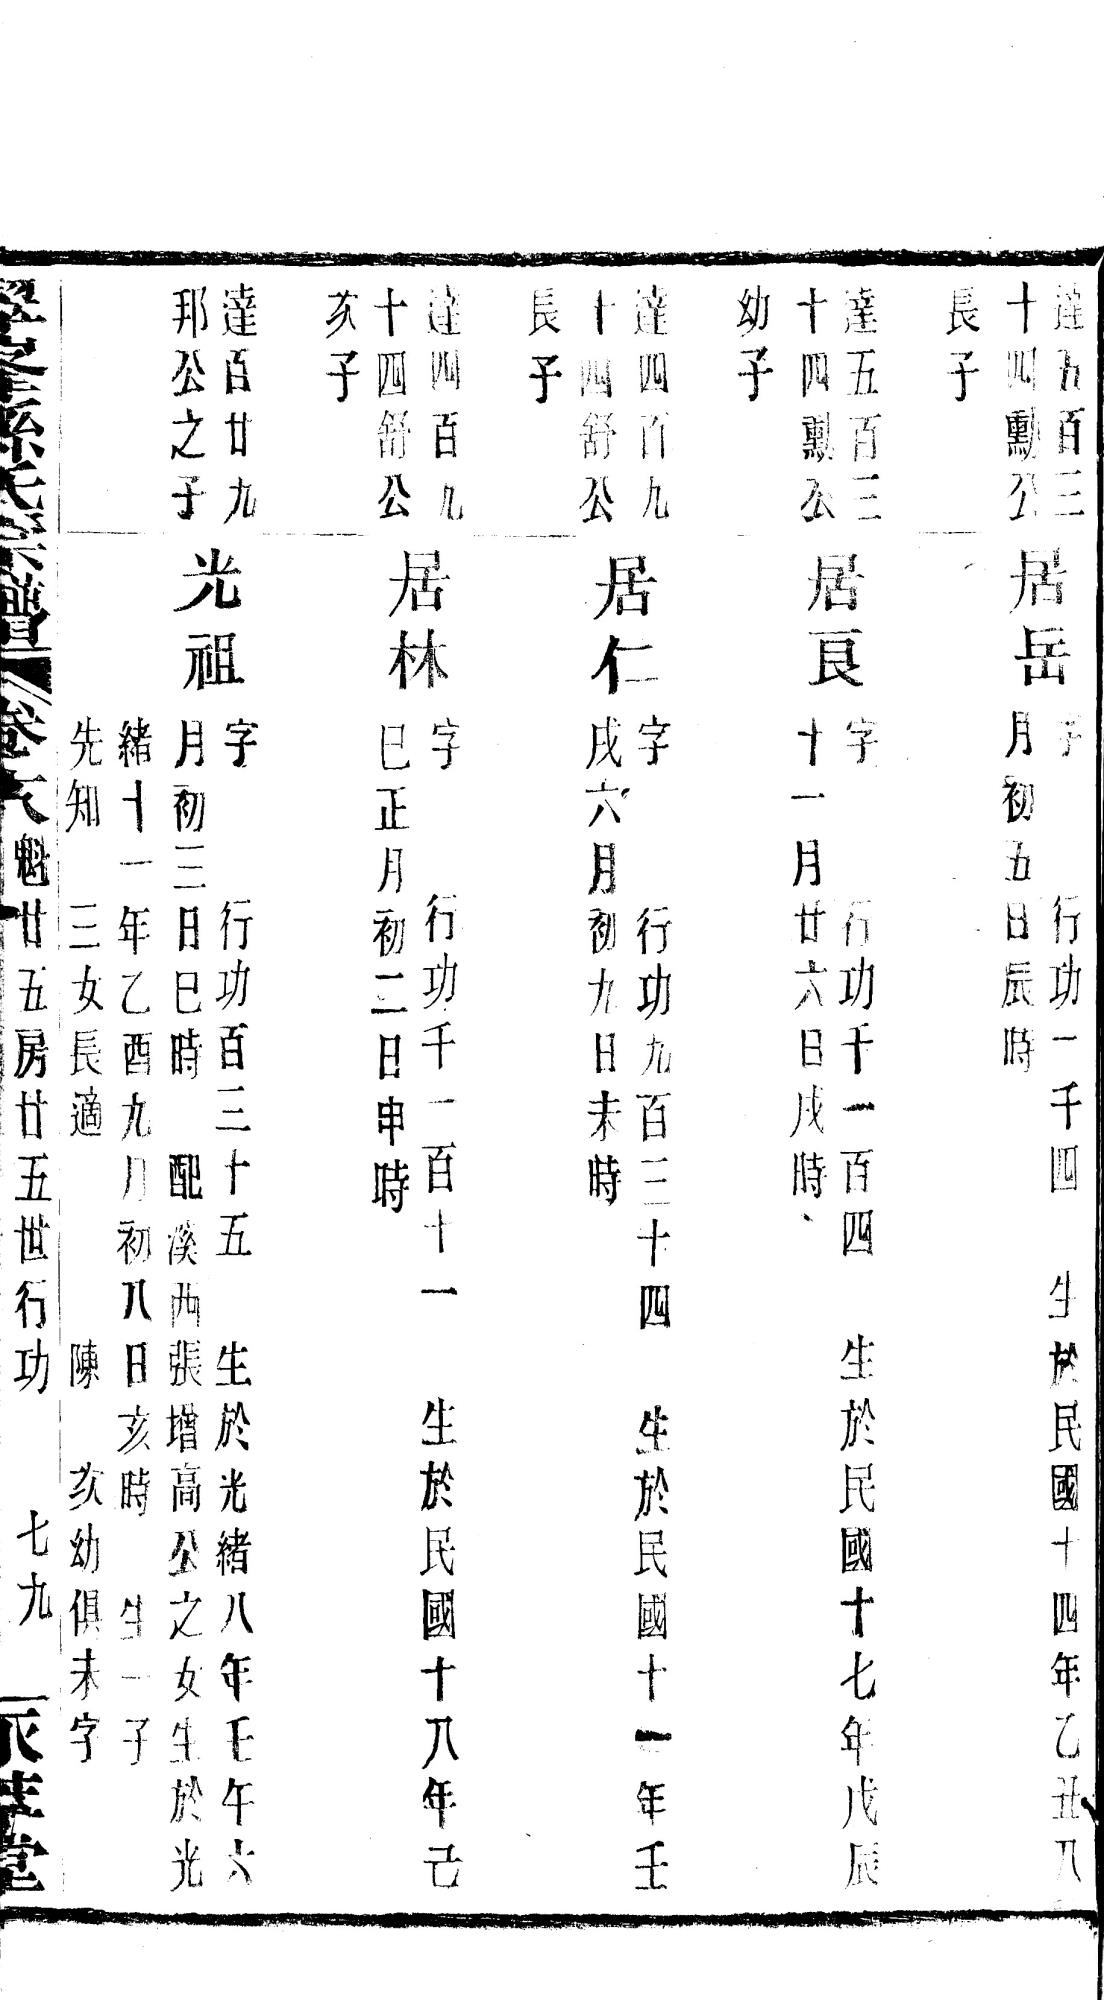 達五百三
十四勳公
長子
居岳
字　行功一千四　生於民國十四年乙丑八
月初五日辰時
達五百三
十四勳公
幼子
居良
字　行功千一百四　生於民國十七年戊辰
十一月廿六日戌時
達四百九
十四舒公
長子
居仁
字　行功九百三十四　生於民國十一年壬
戌六月初九日未時
達四百九
十四舒公
次子
居林
字　行功千一百十一　生於民國十八年己
巳正月初二日申時
達百廿九
邦公之子
光祖
字　行功百三十五　生於光緒八年壬午六
月初三日巳時　配溪西張增高公之女生於光
緒十一年乙酉九月初八日亥時　生一子
先知　三女長適　陳　次幼俱未字
孫氏宗譜　卷六　魁廿五房廿五世行功　七九　堂